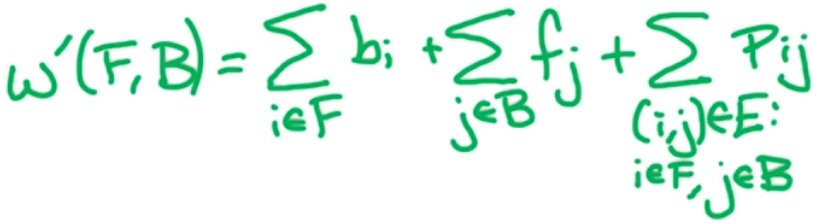 w'(F,B) = ∑_{i∈F} b_i + ∑_{j∈B} f_j + ∑_{(i,j)∈E: i∈F, j∈B} P_{ij}